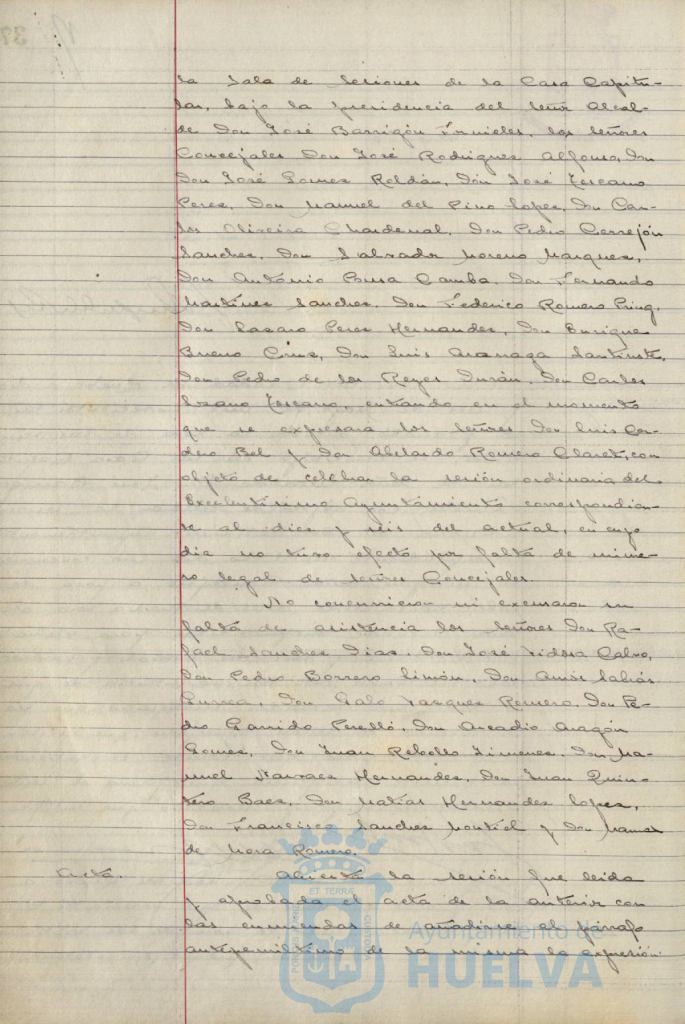 la Sala de Sesiones de la Casa Capitu-
lar, bajo la presidencia del Señor Alcal-
de Don José Barrigón Fornieles, los Señores
Concejales Don José Rodriguez Alfonso, Don
Don José Gomez Roldán, Don José Toscano
Perez, Don Manuel del Pino Lopez, Don Car-
los Oliveira Chardenal, Don Pedro Cerrejón
Sanchez, Don Salvador Moreno Marquez,
Don António Camba, Don Fernando
Martínez Sanchez, Don Federico Romero
Don Lazaro Perez Hernandez, Don Enrique
Bueno Cruz, Don Luis
Don Pedro de los Reyes Durán, Don Carlos
Lozano Toscano, entrando en el momento
que se expresara los Señores Don Luis Cor-
dero Bel y Don Abelardo Romero Claret, con
objeto de celebrar la sesión ordinaria del
Excelentísimo Ayuntamiento correspondien-
te al diez y seis del actual, en cuyo
dia no tuvo efecto por falta de núme-
ro legal de Señores Concejales.
No concurrieron ni excusaron su
falta de asistencia los Señores Don Ra-
fael Sanchez Diaz, Don José Tidosa Calvo,
Don Pedro Borrero Limón, Don Amós Sabrás
Gurrea, Don Galo Vazquez Romero, Don Pe-
dro Garrido Perelló, Don Arcadio Aragón
Gomez, Don Juan Rebollo Jimenez, Don Ma-
nuel Narvaez Hernandez, Don Juan Quin-
tero Baez, Don Matías Hernandez Lopez,
Don Francisco Sanchez Montiel y Don Manuel
de Mora Romero.
Acta.
Abierta la sesión fue leida
y aprobada el acta de la anterior con
las enmiendas de añadirse al párrafo
antepenúltimo de la misma la expresión
ET TERRAE
Ayuntamiento de
HUELVA